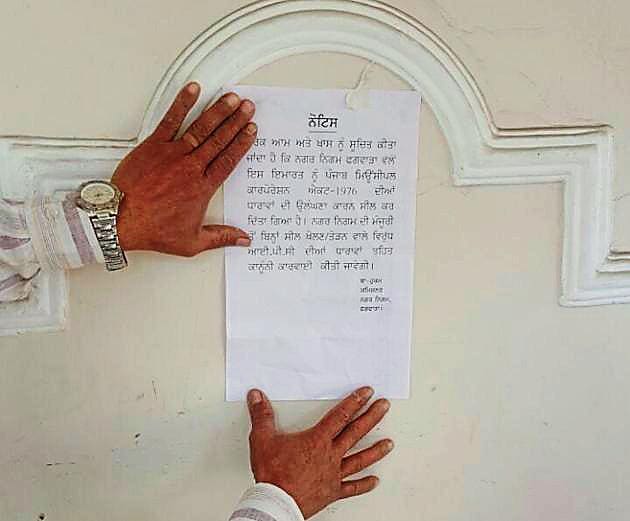 ਨੋਟਿਸ
ਆਮ ਅਤੇ ਖਾਸ ਨੂੰ ਸੂਚਿਤ ਕੀਤਾ
ਜਾਂਦਾ ਹੈ ਕਿ ਨਗਰ ਨਿਗਮ ਫਗਵਾੜਾ ਵੱਲੋਂ
ਇਸ ਇਮਾਰਤ ਨੂੰ ਪੰਜਾਬ ਮਿਊਂਸੀਪਲ
ਕਾਰਪੋਰੇਸ਼ਨ ਐਕਟ-1976 ਦੀਆਂ
ਧਾਰਾਵਾਂ ਦੀ ਉਲੰਘਣਾ ਕਾਰਨ ਸੀਲ ਕਰ
ਦਿੱਤਾ ਗਿਆ ਹੈ। ਨਗਰ ਨਿਗਮ ਦੀ ਮੰਜੂਰੀ
ਤੋਂ ਬਿਨ੍ਹਾਂ ਸੀਲ ਖੋਲਣ/ਤੋੜਨ ਵਾਲੇ ਵਿਰੁੱਧ
ਆਈ.ਪੀ.ਸੀ ਦੀਆਂ ਧਾਰਾਵਾਂ ਤਹਿਤ
ਕਾਨੂੰਨੀ ਕਾਰਵਾਈ ਕੀਤੀ ਜਾਵੇਗੀ।
ਬਾ-ਹੁਕਮ
ਕਮਿਸ਼ਨਰ
ਨਗਰ ਨਿਗਮ,
ਫਗਵਾੜਾ।